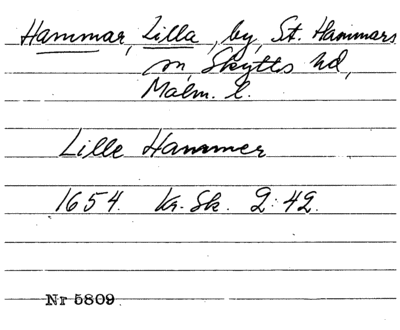 Hammar, Lilla, by, St. Hammars
sn, Skytts hd,
Malm. l.
Lille Hammer
1654. Kr. Sk. 2:42.
Nr 5809